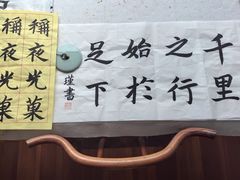 千里
之行
始於
足下
瑾書
稱夜光菓
稱夜光菓